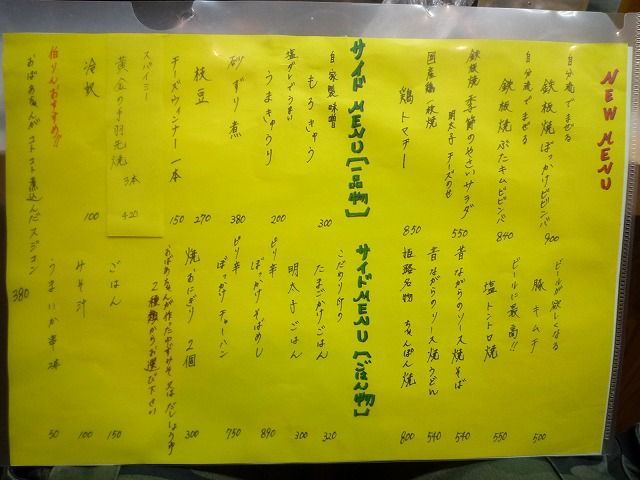 NEW MENU
自分流でまぜる
鉄板焼ぼっかけビビンバ 900
自分流でまぜる
鉄板焼ぶたキムビビンバ 840
鉄板焼 季節のやさいサラダ
明太子チーズのせ 550
国産鶏一枚焼
鶏トマチー 850
ビールが欲しくなる
豚キムチ 500
ビールに最高!!
塩トントロ焼 550
昔ながらのソース焼そば 540
昔ながらのソース焼うどん 540
姫路名物 ちゃんぽん焼 800
サイドMENU[一品物]
自家製味噌
もろきゅう 300
塩ダレでうまい
うまきゅうり 200
砂ずり煮 380
枝豆 270
チーズウィンナー 一本 150
スパイシー
黄金の手羽先焼 3本 420
冷奴 100
サイドMENU[ごはん物]
こだわり卵の
たまごかけごはん 320
明太子ごはん 300
ピリ辛
ぼっかけそばめし 890
ピリ辛
ぼっかけチャーハン 750
焼おにぎり 2個 300
2種類からお選び下せい
ごはん 150
みそ汁 100
うまいか串 1本 50
おばあちゃんがコトコト煮込んだスジコン 380